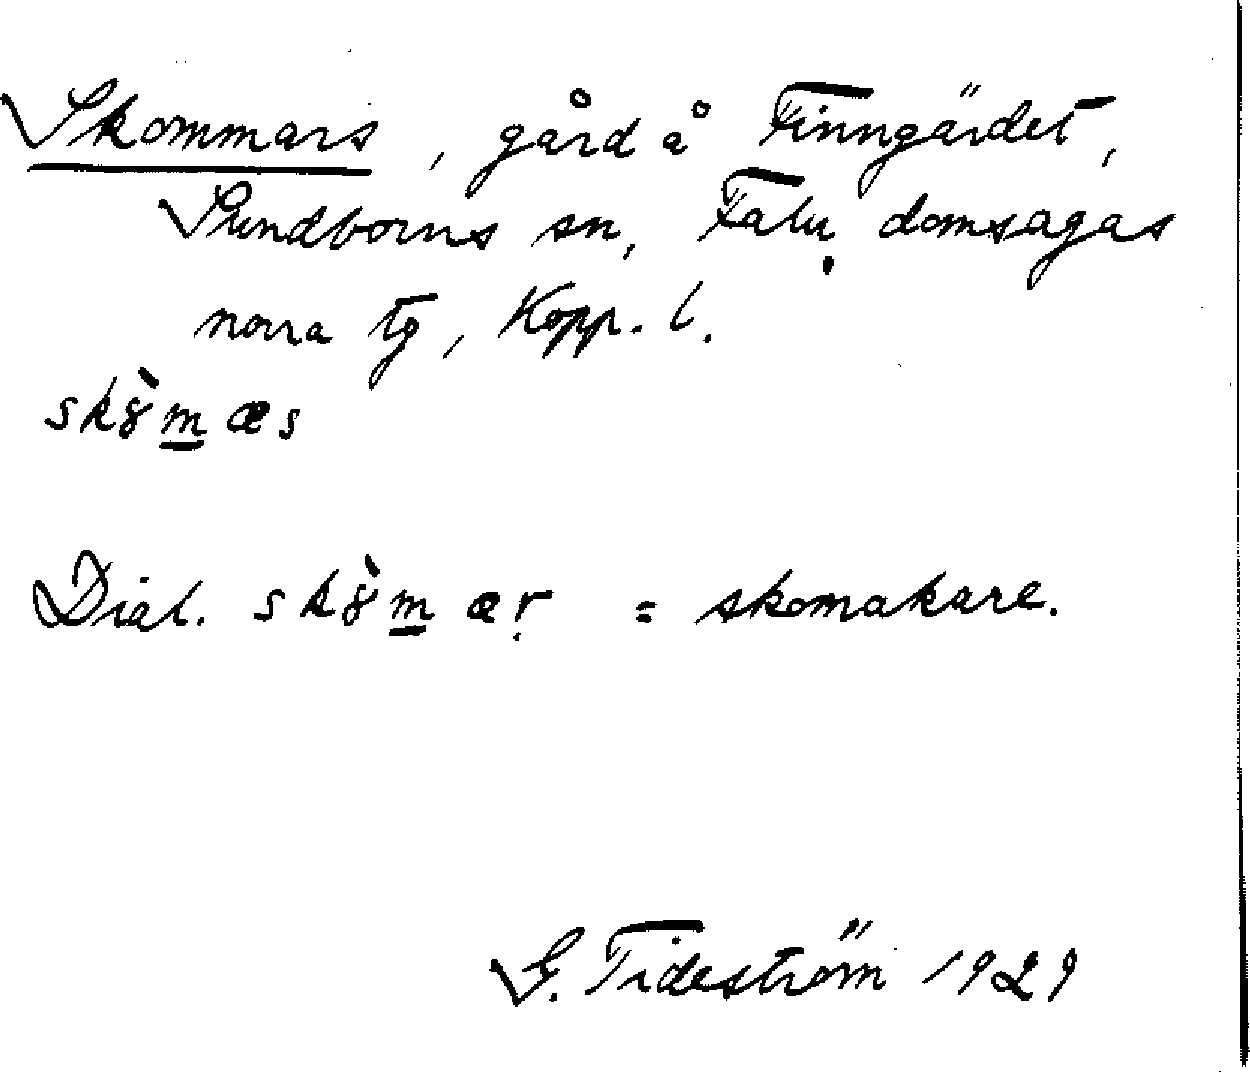 Skommars, gård å Finngärdet,
Sundborns sn, Falu domsagas
norra tg, Kopp. l.
skɤ̀m̲æs
Dial. skɤ̀m̲æṛ = skomakare.
G. Tideström 1929